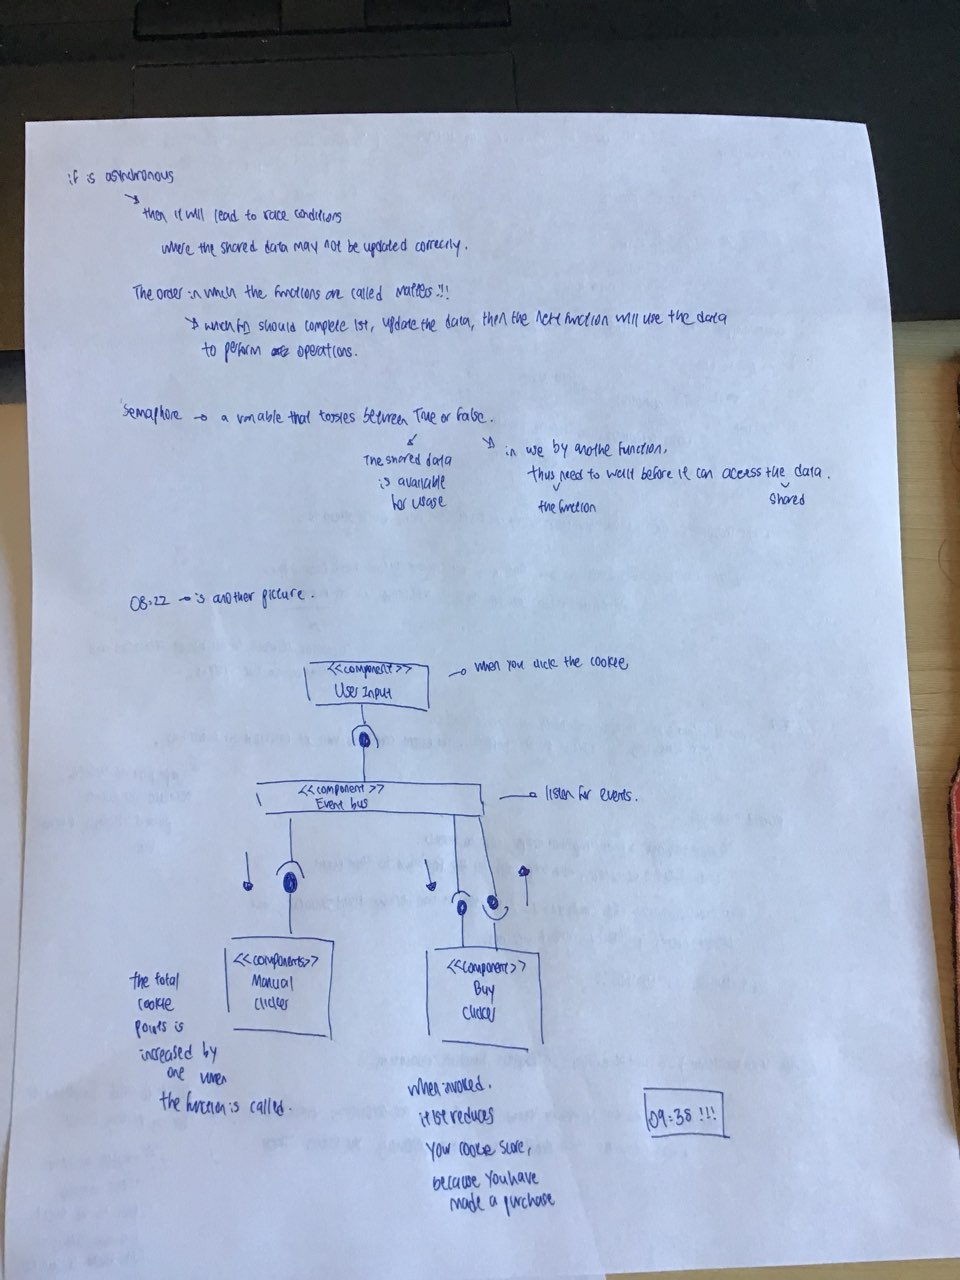 if is asynchronous
then it will lead to race conditions
where the shared data may not be updated correctly.
The order in which the functions are called matters!!!
which fn should complete 1st, update the data, then the next function will use the data
to perform operations.
Semaphore → a variable that tossles between True or False.
The shared data
is available
for usage
in use by another function,
thus need to wait before it can access the data.
the function
shared
08:22 → is another picture.
<<component>>
User Input
when you click the cookie
<<component>>
Event bus
listen for events.
<<components>>
Manual
clicker
<<component>>
Buy
Clicker
the total
cookie
points is
increased by
one when
the function is called.
When invoked.
it 1st reduces
your cookie score,
because you have
made a purchase
09:38 !!!